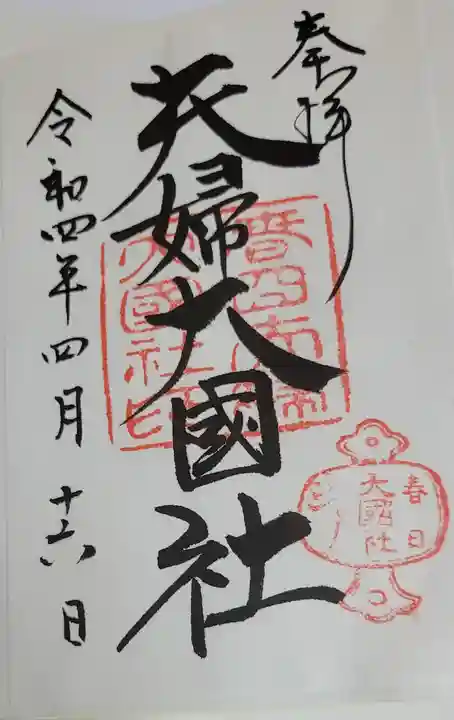 奉拝
夫婦大國社
令和四年四月十六日
春日
大國社